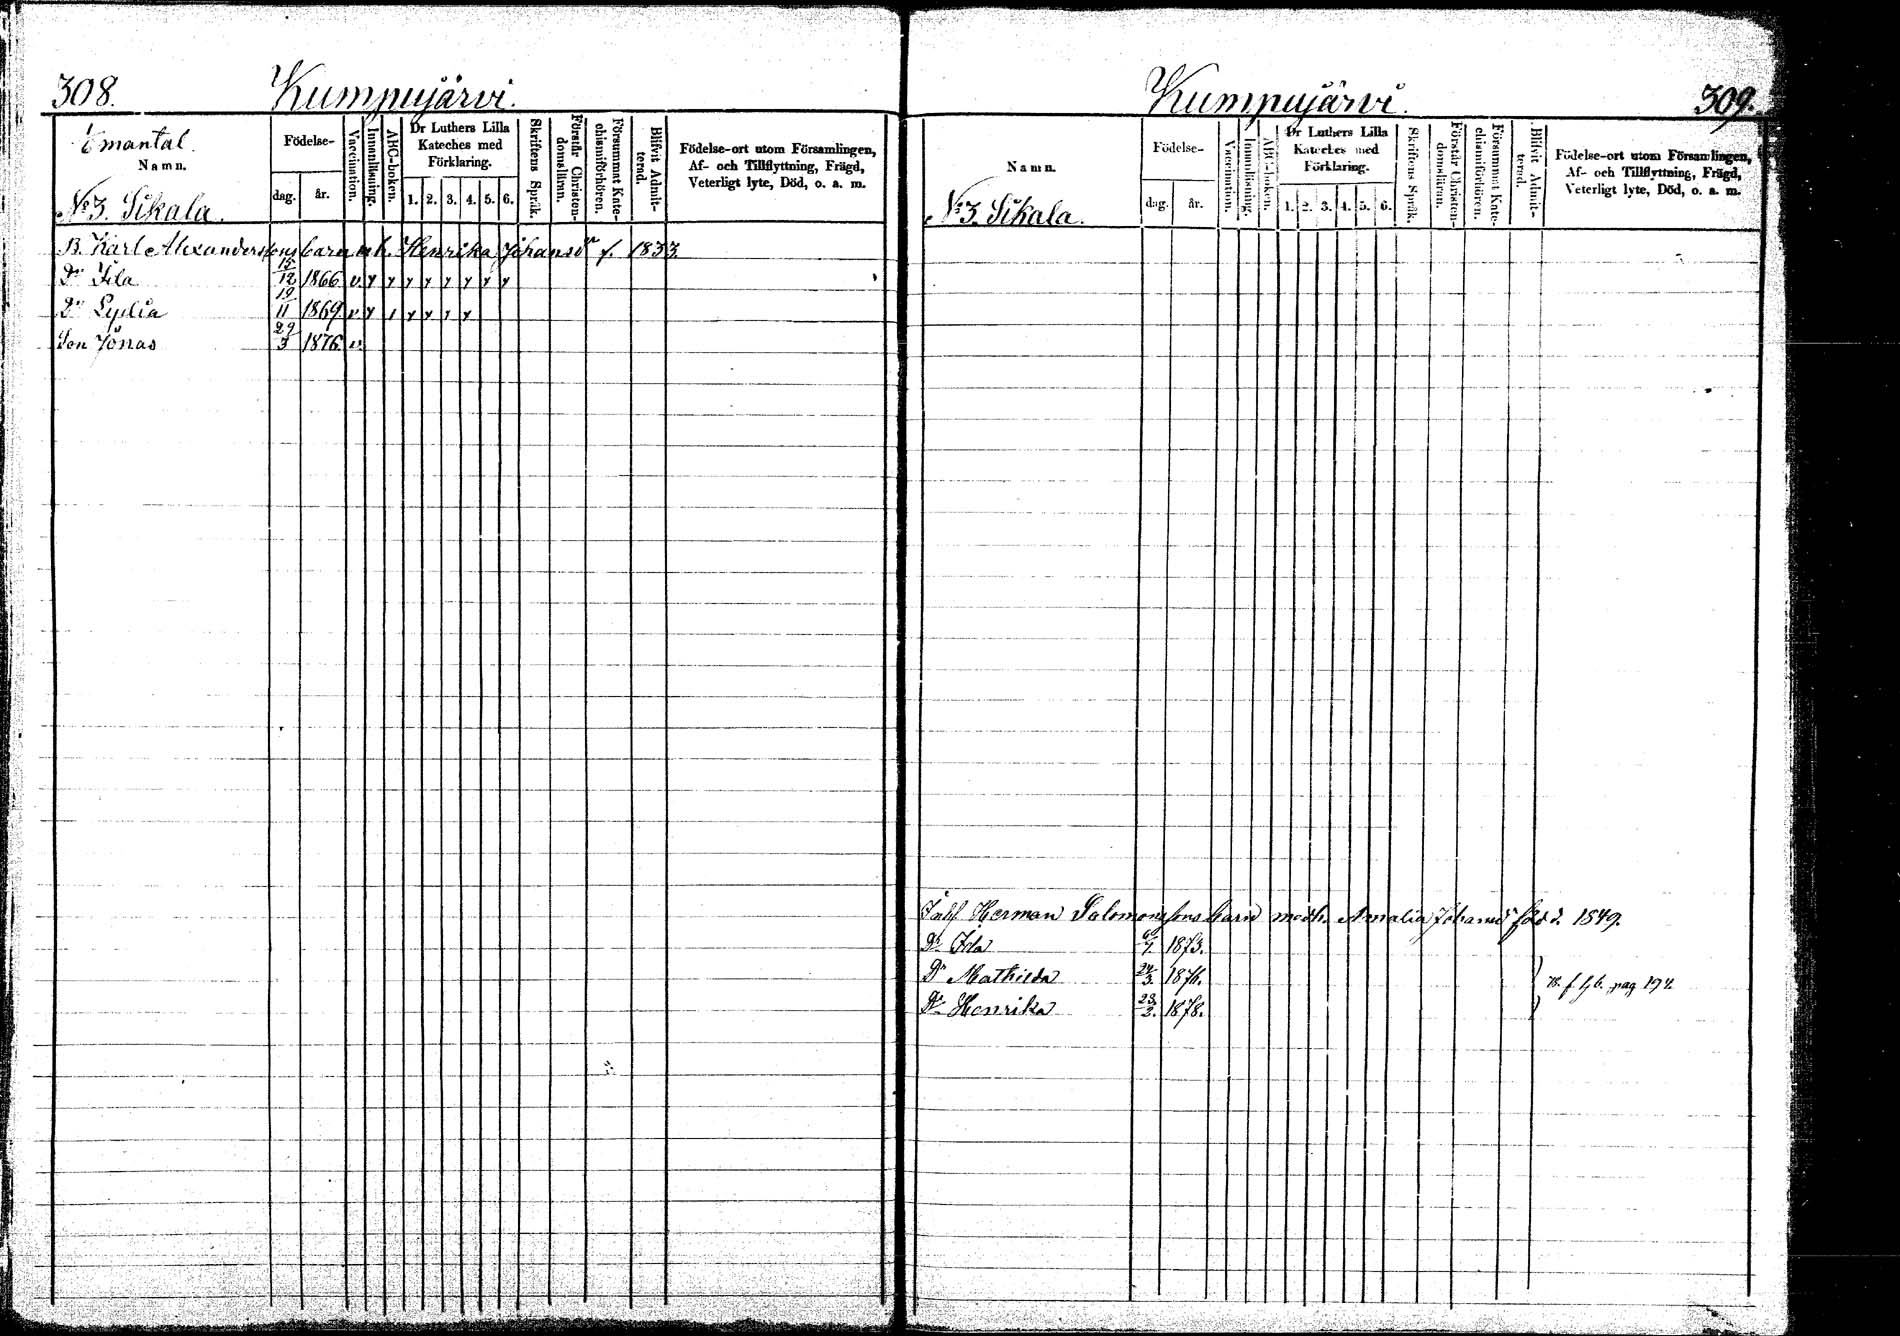 308. Kumpujärvi.
mantal.
Namn.
Födelse-
dag. år.
Vaccination.
Innanläsning.
ABC-boken.
Dr Luthers Lilla
Kateches med
Förklaring.
1. 2. 3. 4. 5. 6.
Skriftens Språk.
Förstår Christen-
domsläran.
Försummat Kate-
chismiförhören.
Blifvit Admit-
terad.
Födelse-ort utom Församlingen,
Af- och Tillflyttning, Frägd,
Veterligt lyte, Död, o. a. m.
No 3. Sikala.
B. Karl Alexanderssons barn m h. Henrika Johansdr f. 1833.
Dr Ida 15/12 1866 v y y y y y y y y
Dr Lydia 19/11 1869 v y y y y y
Son Jonas 29/3 1876. v.
Kumpujärvi. 309.
Namn.
Födelse-
dag. år.
Vaccination.
Innanläsning.
ABC-boken.
Dr Luthers Lilla
Kateches med
Förklaring.
1. 2. 3. 4. 5. 6.
Skriftens Språk.
Förstår Christen-
domsläran.
Försummat Kate-
chismiförhören.
Blifvit Admit-
terad.
Födelse-ort utom Församlingen,
Af- och Tillflyttning, Frägd,
Veterligt lyte, Död, o. a. m.
No 3. Sikala.
Inhs Herman Salomonssons barn med h. Amalia Johansdr född 1849.
Dr Ida 1873.
Dr Mathilda 24/3. 1876.
Dr Henrika 23/2. 1878.
pag 194.